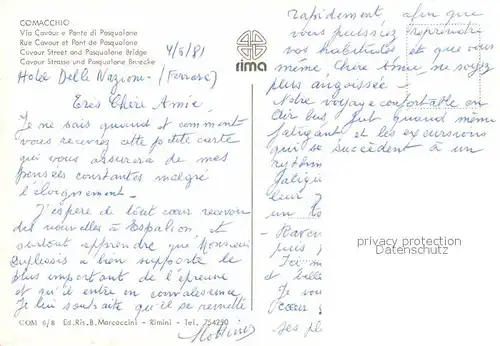 COMACCHIO
Via Cavour e Ponte di Pasqualone
Rue Cavour et Pont de Pasqualone
Cavour Street and Pasqualone Bridge
Cavour Strasse und Pasqualone Bruecke
4/5/81
rima
Hotel Delle Nazioni - (Ferrare)
Très Chère Amie,
Je ne sais quand et comment
vous recevrez cette petite carte
qui vous assurera de mes
pensées constantes malgré
l'éloignement -
J'espère de tout cœur recevoir
des nouvelles à Espalion, et
surtout apprendre que Monsieur
a bien supporté le
plus important de l'épreuve
et qu'il entre en convalescence.
Je lui souhaite qu'il se remette
COM 0/8 Ed. Ris. B. Marcaccini - Rimini - Tel. 754250
rapidement, afin que
vous puissiez reprendre
vos habitudes et que vous
même, Chère Amie, ne soyez
plus angoissée -
Notre voyage confortable en
Air bus, fut quand même
fatigant et les excursions
qui se succèdent à un
rythme
fatigu
leur
un
- Raven
puis
et belle
Je vou
cœur
ses pl
privacy protection
Datenschutz